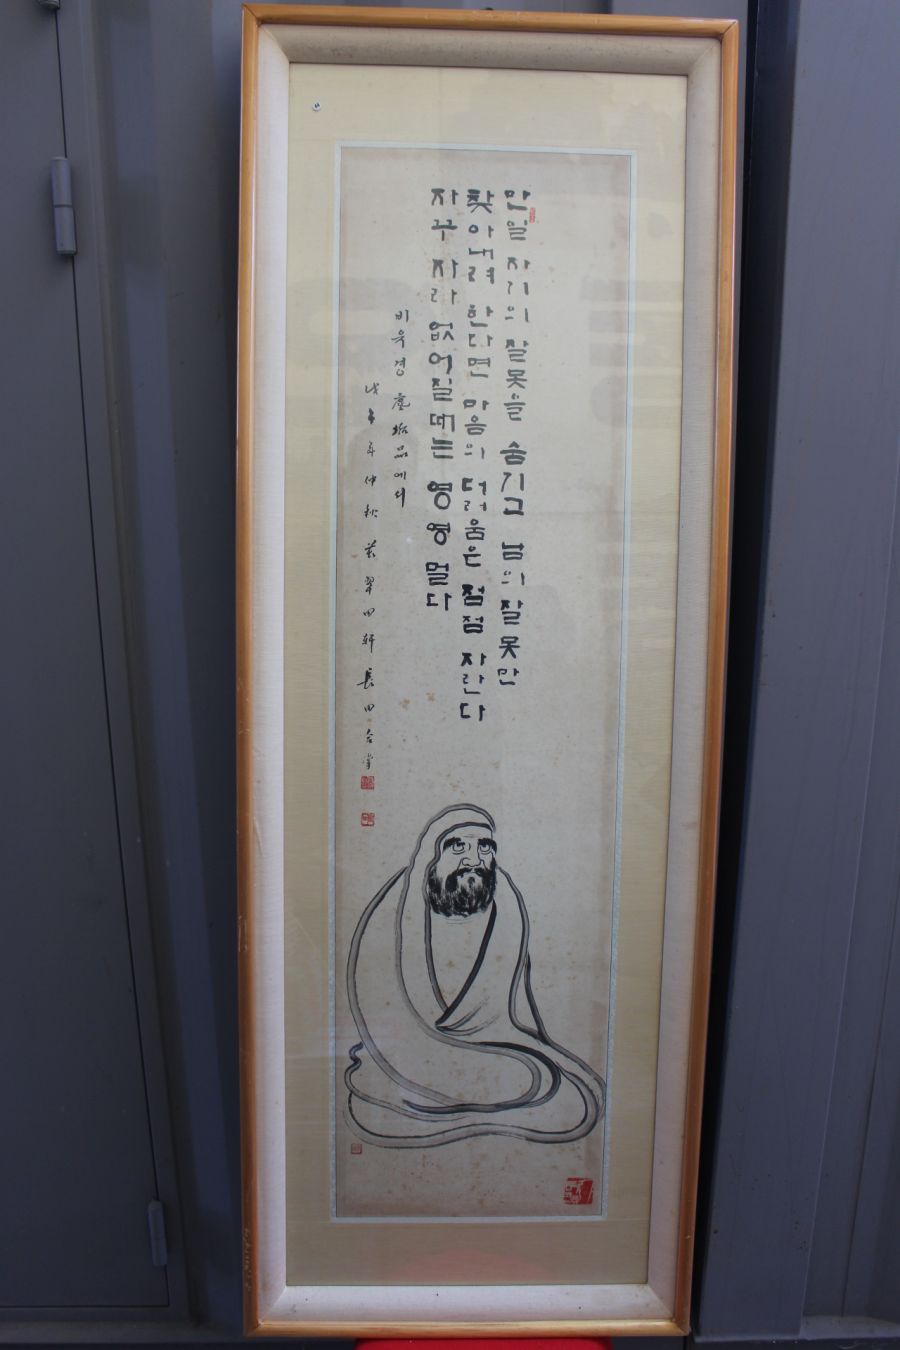 만일 자기의 잘못을 숨기고 남의 잘못만
찾아내려 한다면 마음의 더러움은 점점 자란다
자꾸 자라 없어질 때는 영영 멀다
비유경 塵垢品에서
戊午年仲秋 翠田軒 長田合掌